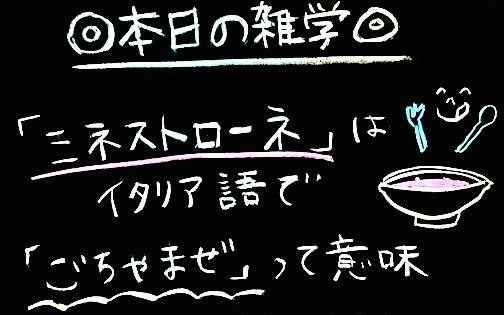 ◎本日の雑学◎
「ミネストローネ」は
イタリア語で
「ごちゃまぜ」って意味